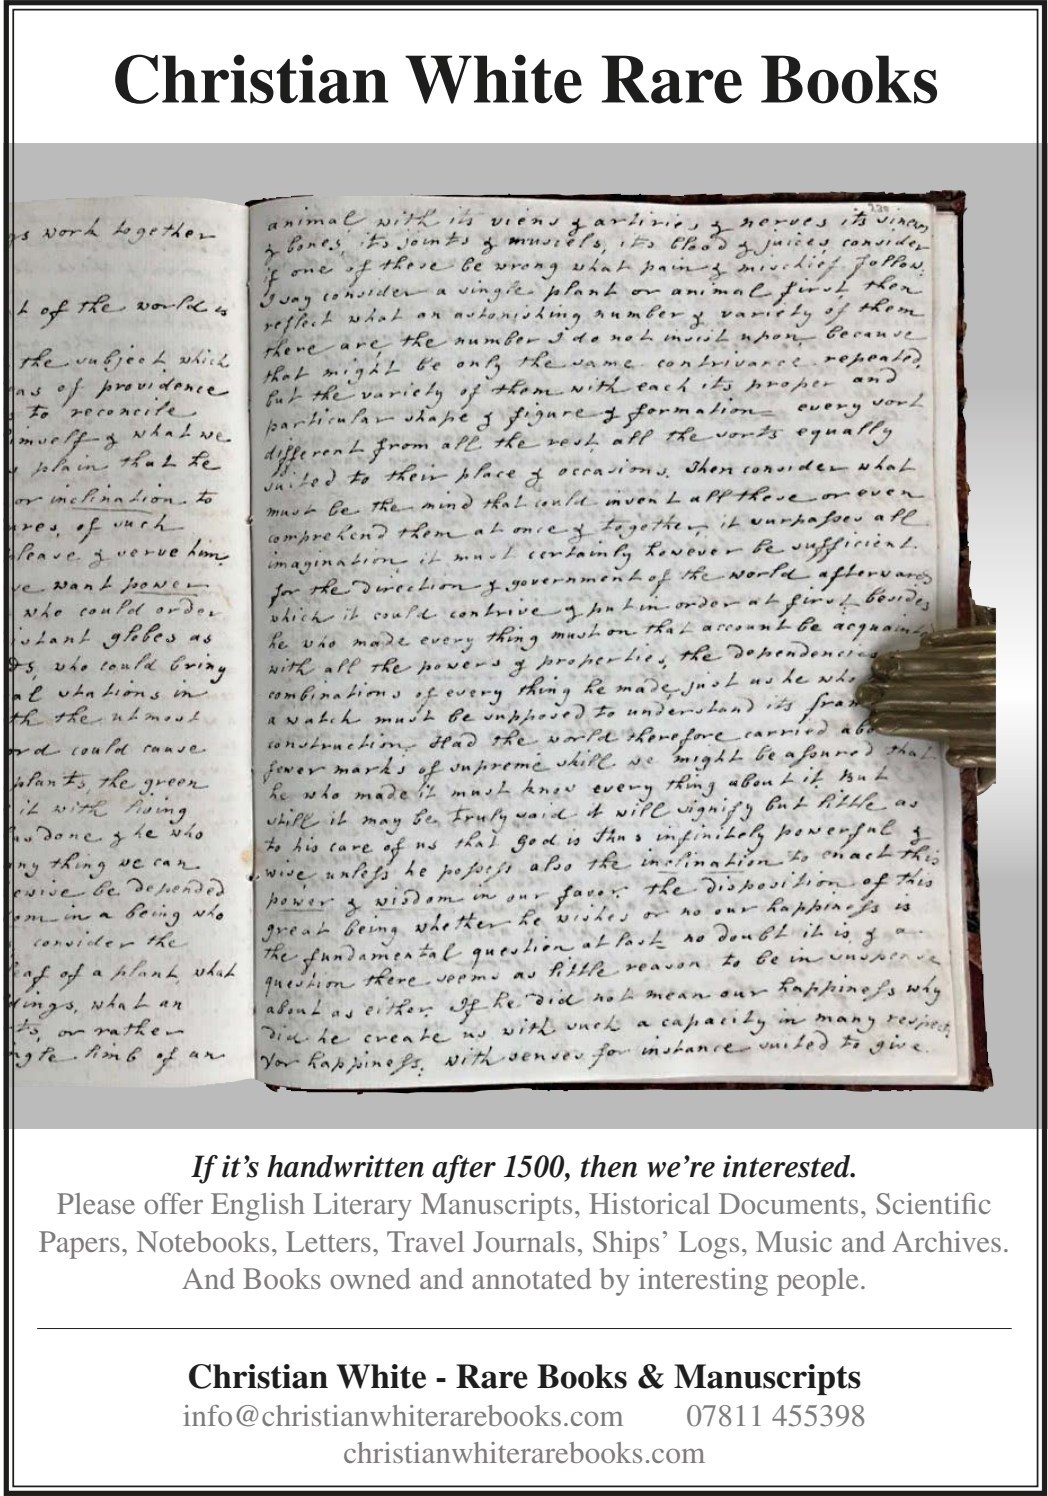 Christian White Rare Books
230
gs work together
t of the world is
the subject which
as of providence
to reconcile
imself & what we
plain that he
or inclination to
ures, of such
please & serve him,
we want power
who could order
istant globes as
ts, who could bring
al stations in
th the utmost
ord could cause
plants, the green
it with living
has done & he who
any thing we can
ewise be depended
om in a being who
consider the
leaf of a plant, what
dings, what an
ts, or rather
ngle limb of an
animal with its viens & artiries & nerves its sinews
& bones, its joints & muscels, its blood & juices, consider
if one of these be wrong what pain & mischief follow.
I say consider a single plant or animal first, then
reflect what an astonishing number & variety of them
there are the number I do not insist upon because
that might be only the same contrivance repeated,
but the variety of them with each its proper and
particular shape & figure & formation every sort
different from all the rest, all the sorts equally
suited to their place & occasions. Then consider what
must be the mind that could invent all these or even
comprehend them at once & together, it surpasses all
imagination it must certainly however be sufficient.
for the direction & government of the world afterwards
which it could contrive & put in order at first, besides
he who made every thing must on that account be acquainted
with all the powers & properties, the dependencies
combinations of every thing he made, just as he who
a watch must be supposed to understand its fram
construction. Had the world therefore carried abo
fewer marks of supreme skill we might be assured that
he who made it must know every thing about it. But
still it may be truly said it will signify but little as
to his care of us that God is thus infinitely powerful &
wise unless he possess also the inclination to enact this
power & wisdom in our favor. the disposition of this
great being whether he wishes or no our happiness is
the fundamental question at last no doubt it is, & a
question there seems as little reason to be in suspense
about as either. If he did not mean our happiness why
did he create us with such a capacity in many respects
for happiness, with senses for instance suited to give
If it’s handwritten after 1500, then we’re interested.
Please offer English Literary Manuscripts, Historical Documents, Scientific
Papers, Notebooks, Letters, Travel Journals, Ships’ Logs, Music and Archives.
And Books owned and annotated by interesting people.
Christian White - Rare Books & Manuscripts
info@christianwhiterarebooks.com 07811 455398
christianwhiterarebooks.com